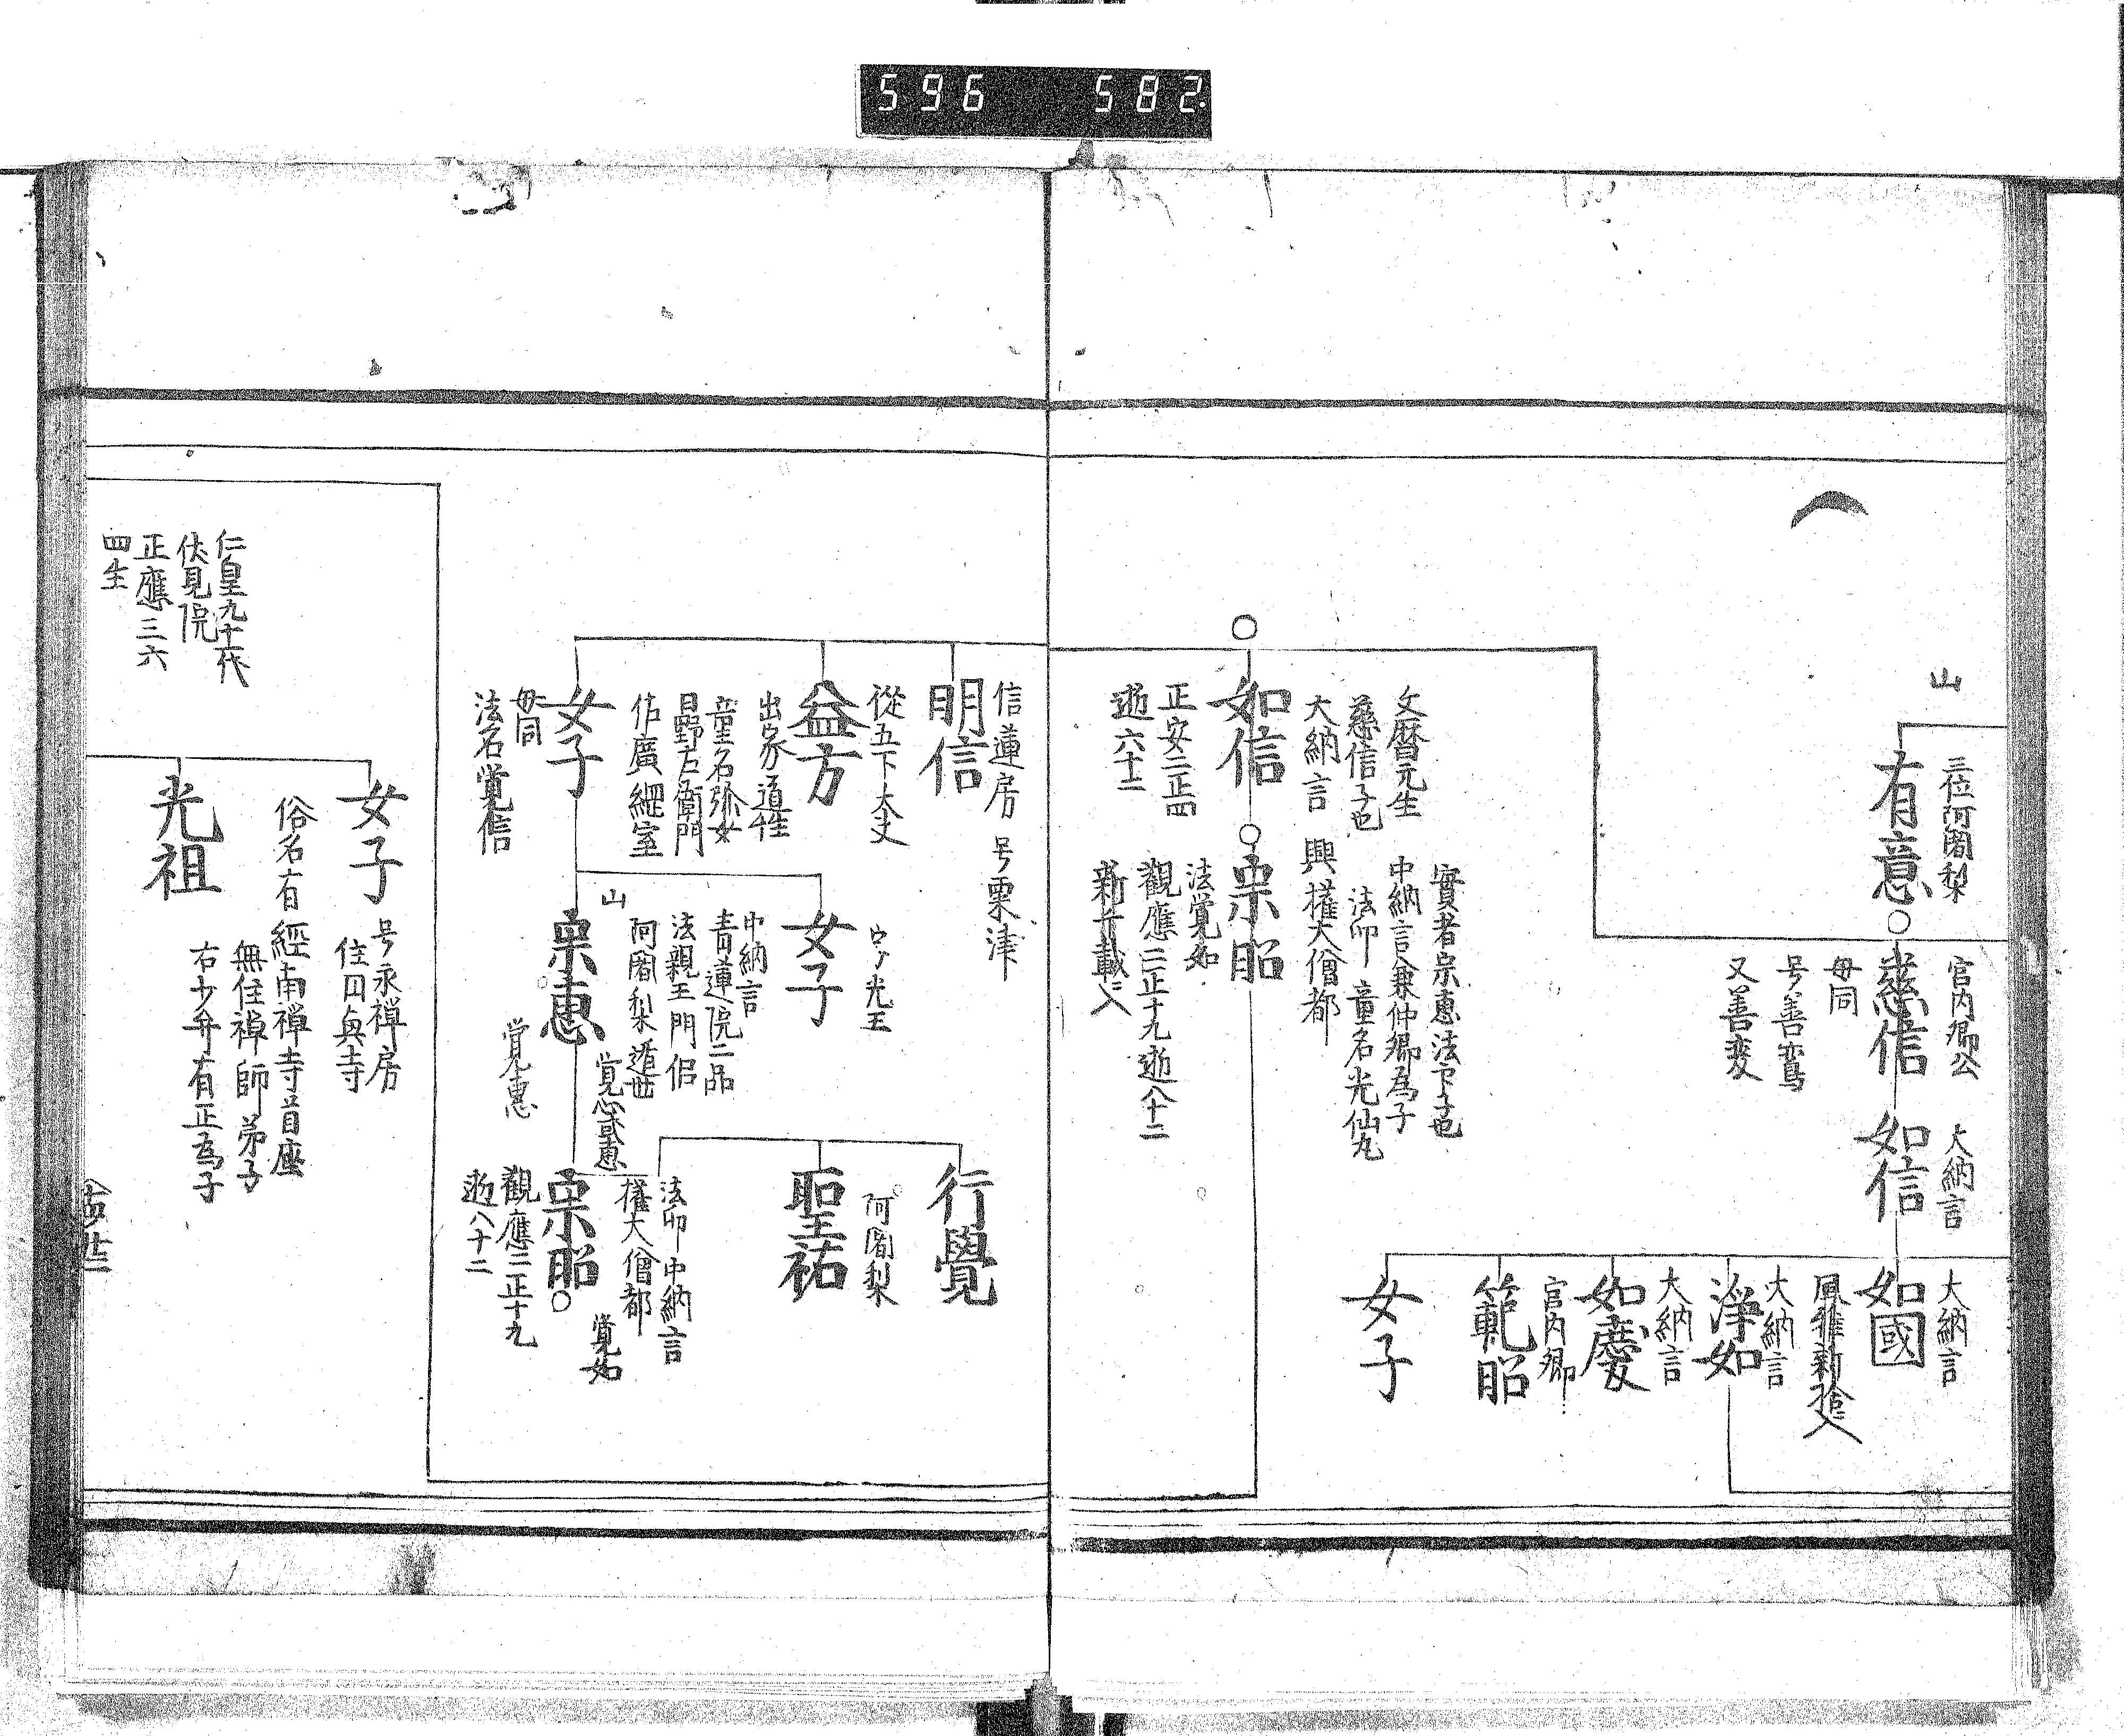 596 582
山
三位阿闍梨
有意
宮内卿公
慈信
母同
号善鸞
又善変
大納言
如信
大納言
如國
風雅新拾入
大納言
淨如
大納言
如慶
宮内卿
範昭
女子
文暦元生
慈信子也
大納言
如信
正安二正四
逝六十二
實者宗惠法下子也
中納言兼仲卿為子
法印 童名光仙丸
興 權大僧都
宗昭
法覚如
觀應二正十九逝八十二
新千載入
信蓮房 号栗津
明信
從五下 大夫
益方
出家道性
童名弥女
日野左衛門
佐廣綱室
女子
母同
法名覚信
光玉
女子
山
中納言
青蓮院二品
法親王門侶
阿闍梨遁世
宗惠
覚惠
行覺
阿闍梨
聖祐
法印 中納言
權大僧都
宗昭
覚如
觀應二正十九
逝八十二
女子
号永禅房
住日奥寺
俗名有經南禅寺首座
光祖
無住禅師弟子
右少弁有正為子
仁皇九十一代
伏見院
正應三六
四生